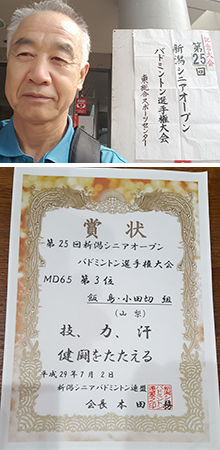 記念大会
第25回
新潟シニアオープン
バドミントン選手権大会
東総合スポーツセンター
賞状
第25回新潟シニアオープン
バドミントン選手権大会
MD65 第3位
飯島・小田切 組
(山梨)
技、力、汗
健闘をたたえる
平成29年7月2日
新潟シニアバドミントン連盟
会長 本田 務